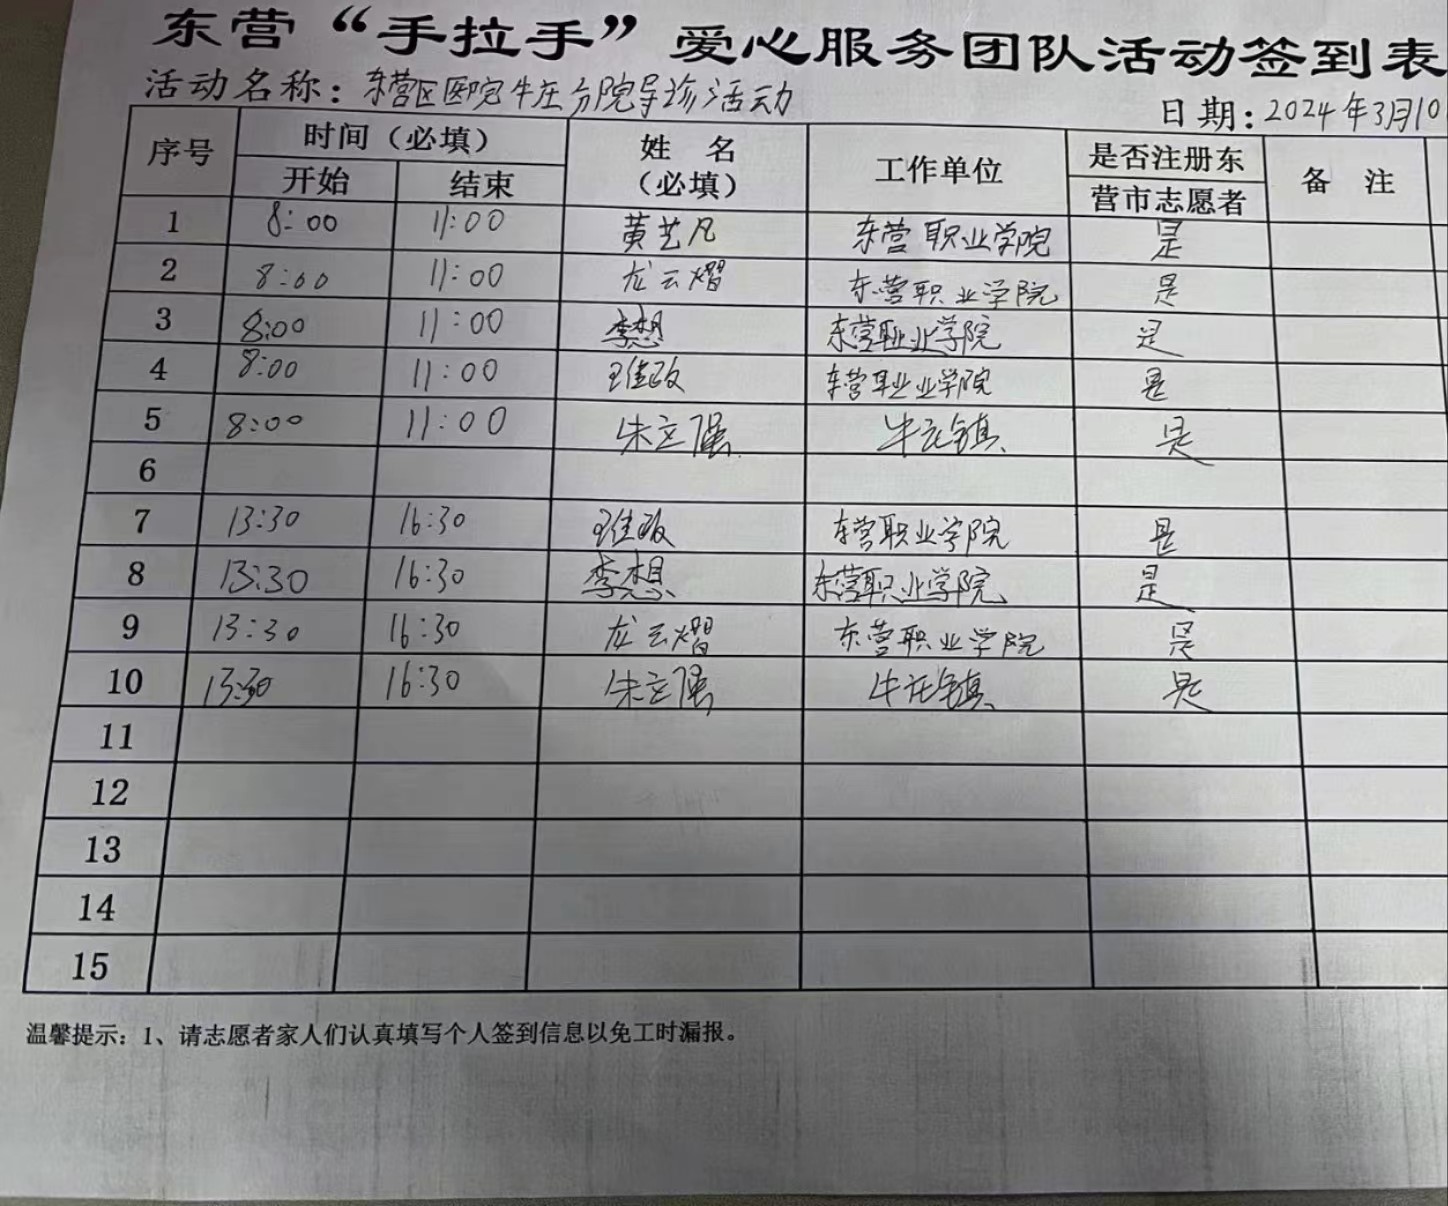 东营“手拉手”爱心服务团队活动签到表
活动名称：东营区医院牛庄分院导诊活动
日期：2024年3月10
序号 时间（必填） 姓 名（必填） 工作单位 是否注册东营市志愿者 备 注
开始 结束
1 8:00 11:00 黄艺凡 东营职业学院 是
2 8:00 11:00 龙云熠 东营职业学院 是
3 8:00 11:00 李想 东营职业学院 是
4 8:00 11:00 东营职业学院 是
5 8:00 11:00 朱立强 牛庄镇 是
6
7 13:30 16:30 东营职业学院 是
8 13:30 16:30 李想 东营职业学院 是
9 13:30 16:30 龙云熠 东营职业学院 是
10 13:30 16:30 朱立强 牛庄镇 是
11
12
13
14
15
温馨提示：1、请志愿者家人们认真填写个人签到信息以免工时漏报。